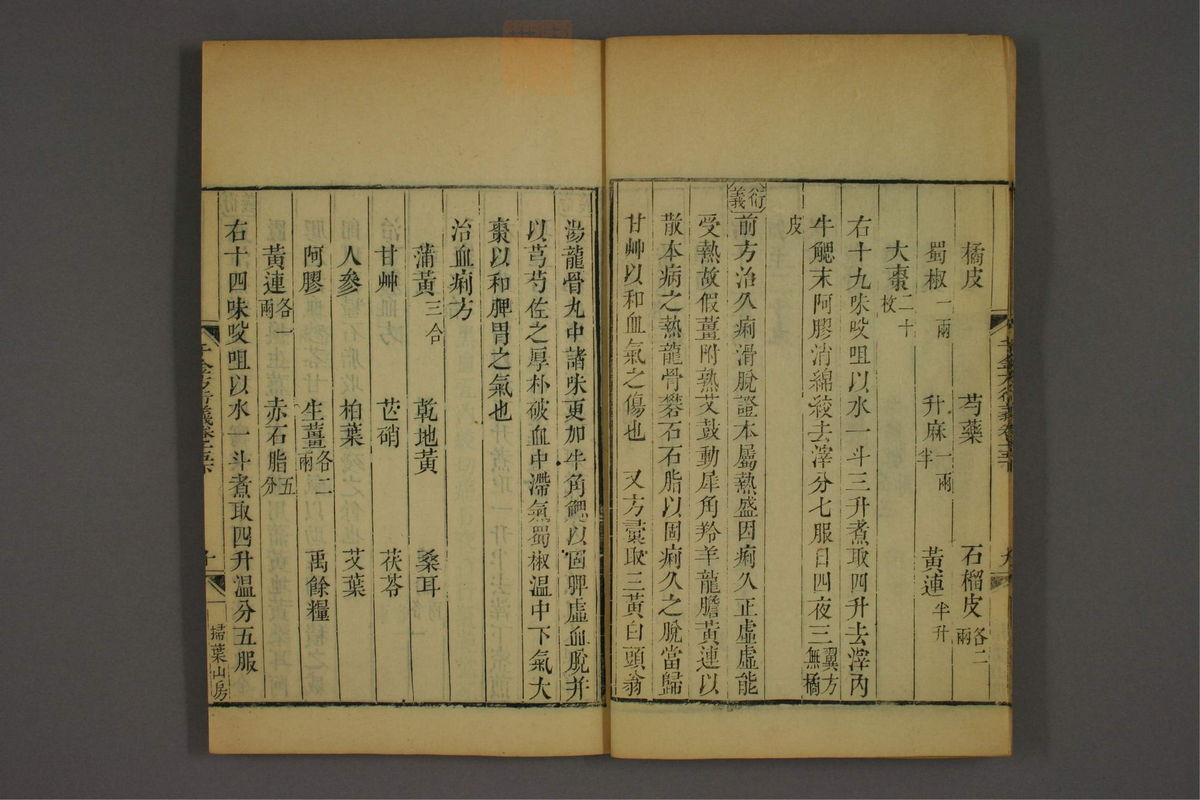 橘皮 芍藥 石榴皮各二兩
蜀椒一兩 升麻一兩半 黃連半升
大棗二十枚
右十九味㕮咀以水一斗三升煮取四升去滓內
牛䚡末阿膠消綿絞去滓分七服日四夜三翼方無橘
皮
衍義前方治久痢滑脫證本屬熱盛因痢久正虛虛能
受熱故假薑附熟艾鼓動犀角羚羊龍膽黃連以
散本病之熱龍骨礬石石脂以固痢久之脫當歸
甘艸以和血氣之傷也 又方彙取三黃白頭翁
湯龍骨丸中諸味更加牛角䚡以固脾虛血脫并
以芎芍佐之厚朴破血中滯氣蜀椒溫中下氣大
棗以和脾胃之氣也
治血痢方
蒲黃三合 乾地黃 桑耳
甘艸 芒硝 茯苓
人參 柏葉 艾葉
阿膠 生薑各二兩 禹餘糧
黃連各一兩 赤石脂五分
右十四味㕮咀以水一斗煮取四升溫分五服
千金方衍義卷十五下
十
掃葉山房